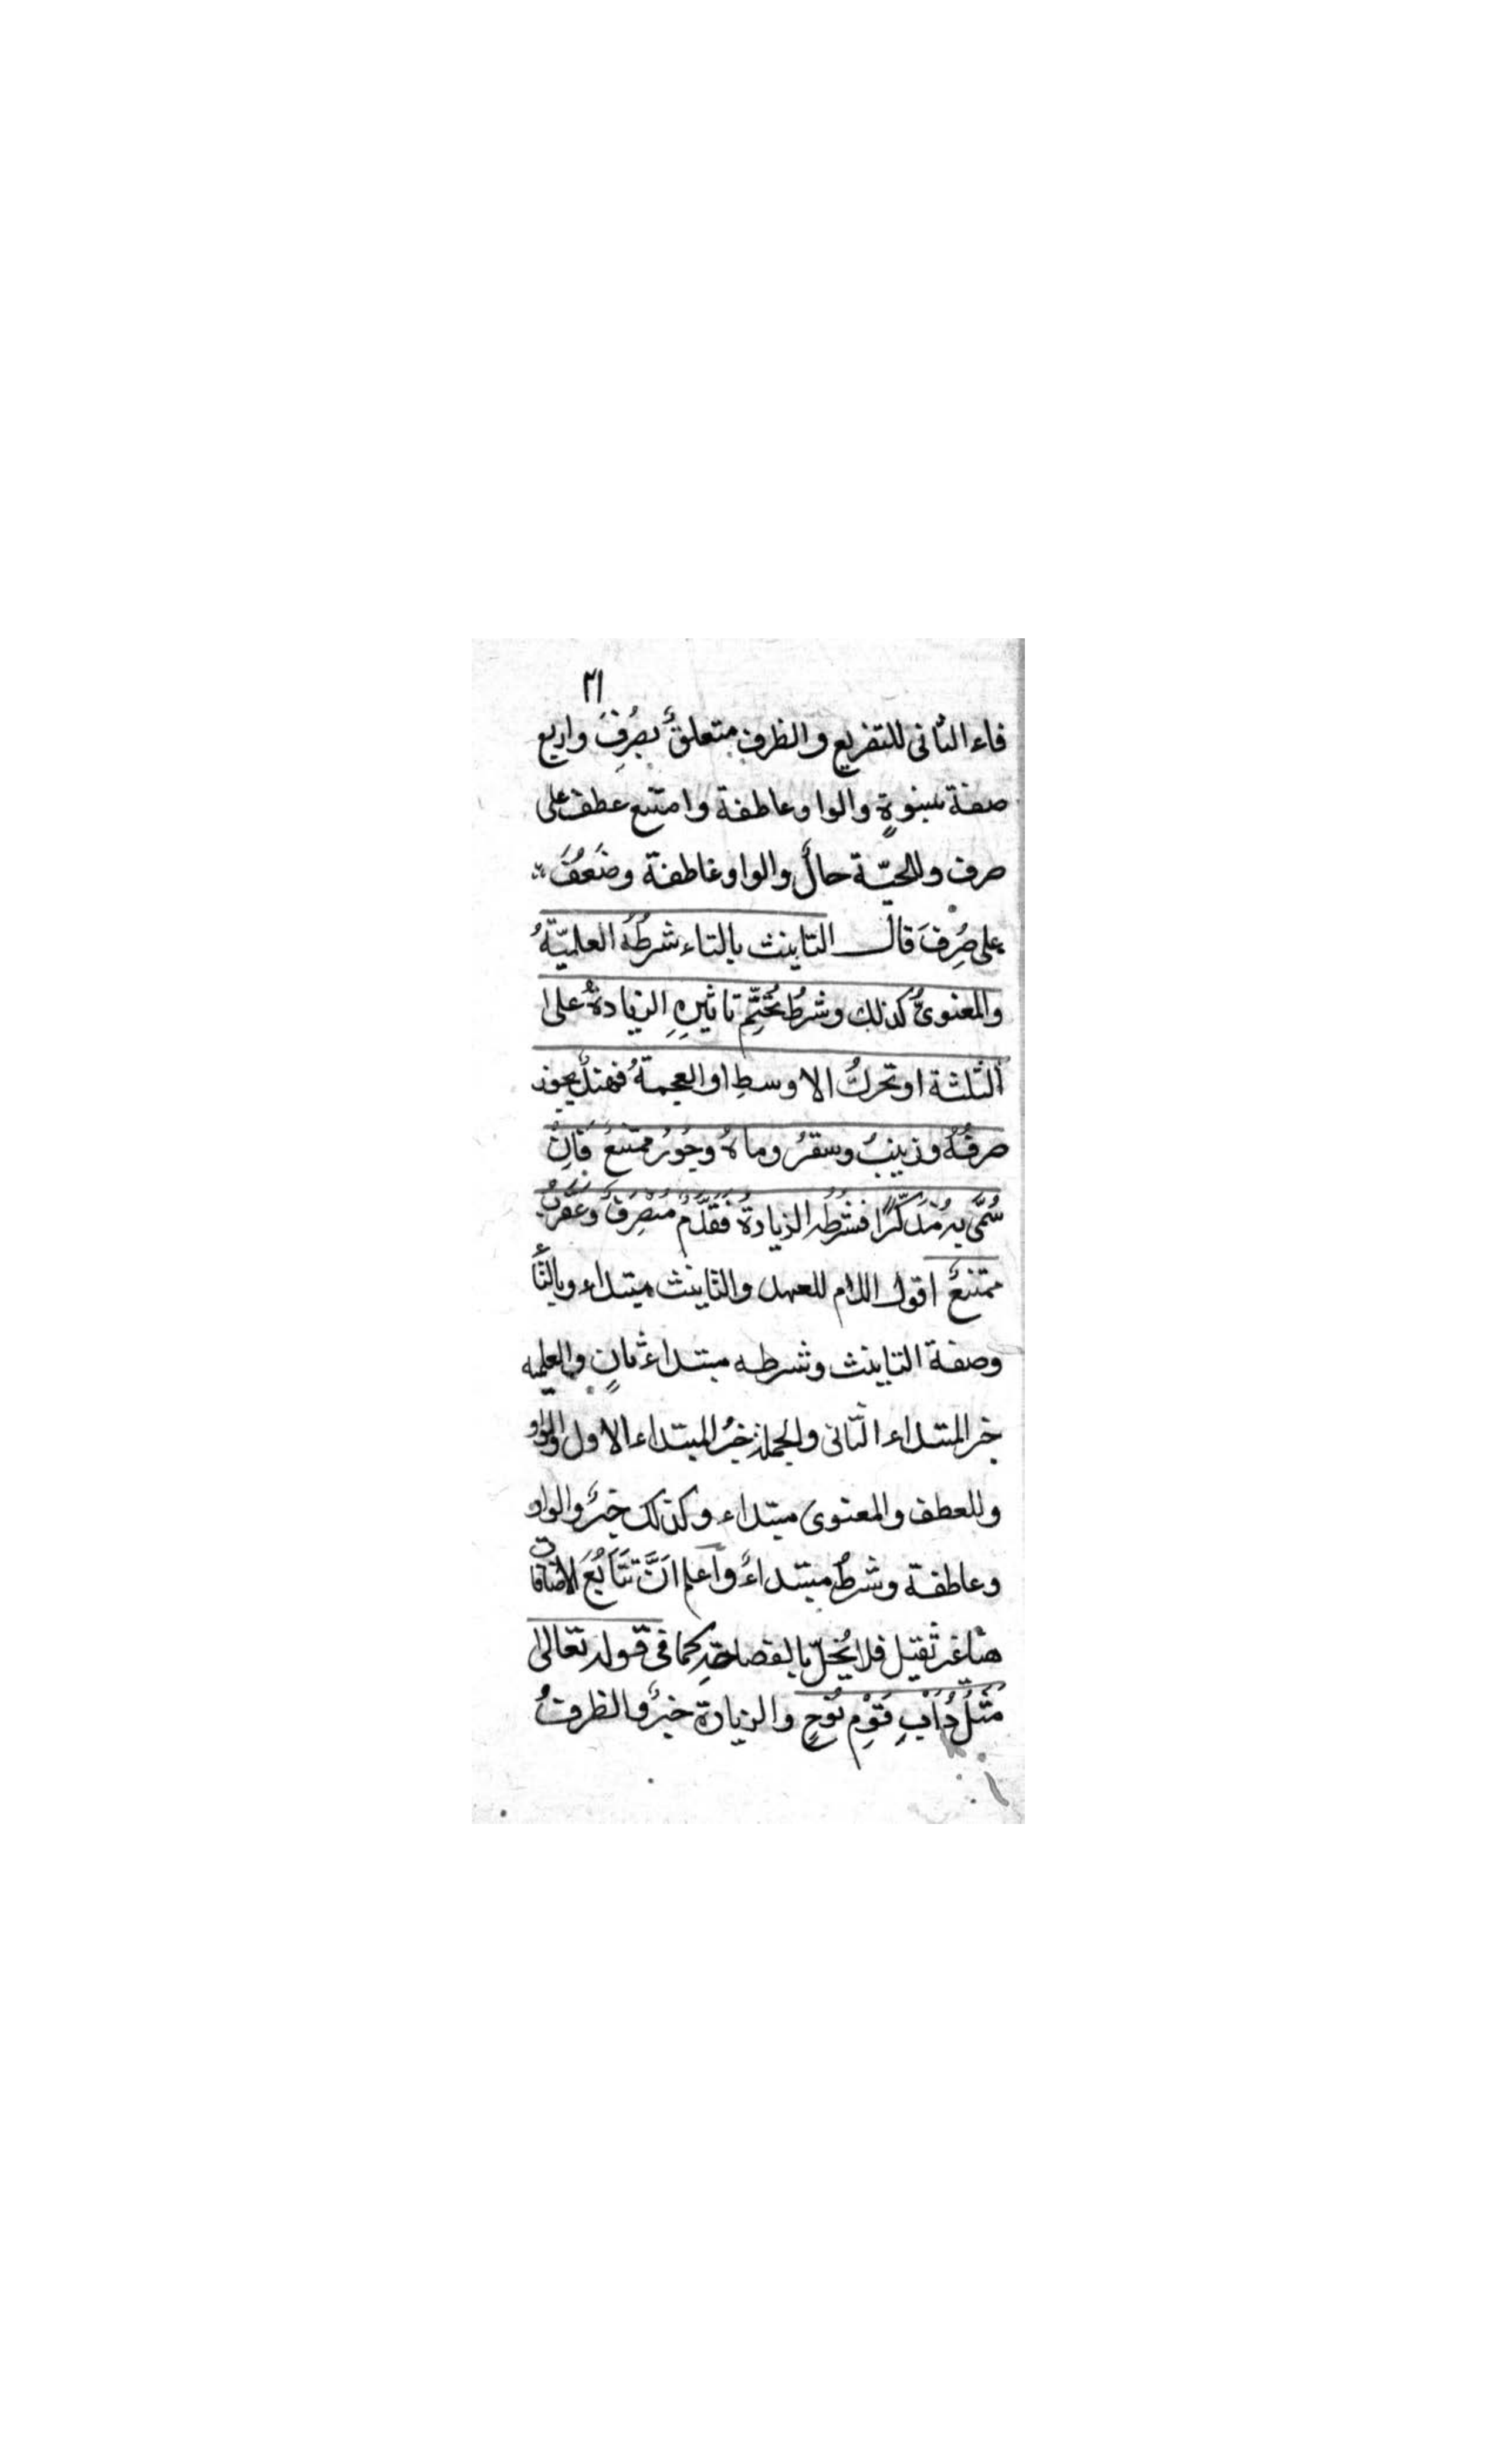 ٢١
فاء الثانى للتفريع والظرف متعلقٌ بصُرِفَ واربع
صفة نسوةٍ والواو عاطفة وامتنع عطف على
صرف وللحيّة حالٌ والواو عاطفة وضَعُفَ
على صُرِفَ قال التانيث بالتاء شرطُهُ العلميّةُ
والمعنوىُّ كذلك وشرطُ تحَتُّمِ تاثيرِهِ الزيادةُ على
الثلثة او تحركُ الاوسطِ او العجمةُ فهندٌ يجوز
صرفُهُ وزينبُ وسقرُ وماهُ وجُورُ ممتنعٌ فَاِنْ
سُمَّىَ بهِ مُذَكَّرًا فشرطُه الزيادةُ فَقَدَمٌ مُنْصَرِفٌ وَعَقْرَبُ
ممتنعٌ اقول اللام للعهد والتانيث مبتداء وبالتاء
وصفة التانيث وشرطه مبتداء ثانٍ والعلميه
خبر المبتداء الثانى والجملة خبرُ المبتداء الاول والواو
وللعطف والمعنوى مبتداء وكذلك خبرٌ والواو
وعاطفة وشرطُ مبتداءٌ واعلم اَنَّ تَتَابُعَ الاضافات
هنا غير ثقيل فلا يُخِلّ بالفصاحةِ كما فى قوله تعالى
مِثْلُ دَأْبِ قَوْمِ نُوحٍ والزيادة خبرٌ والظرفُ